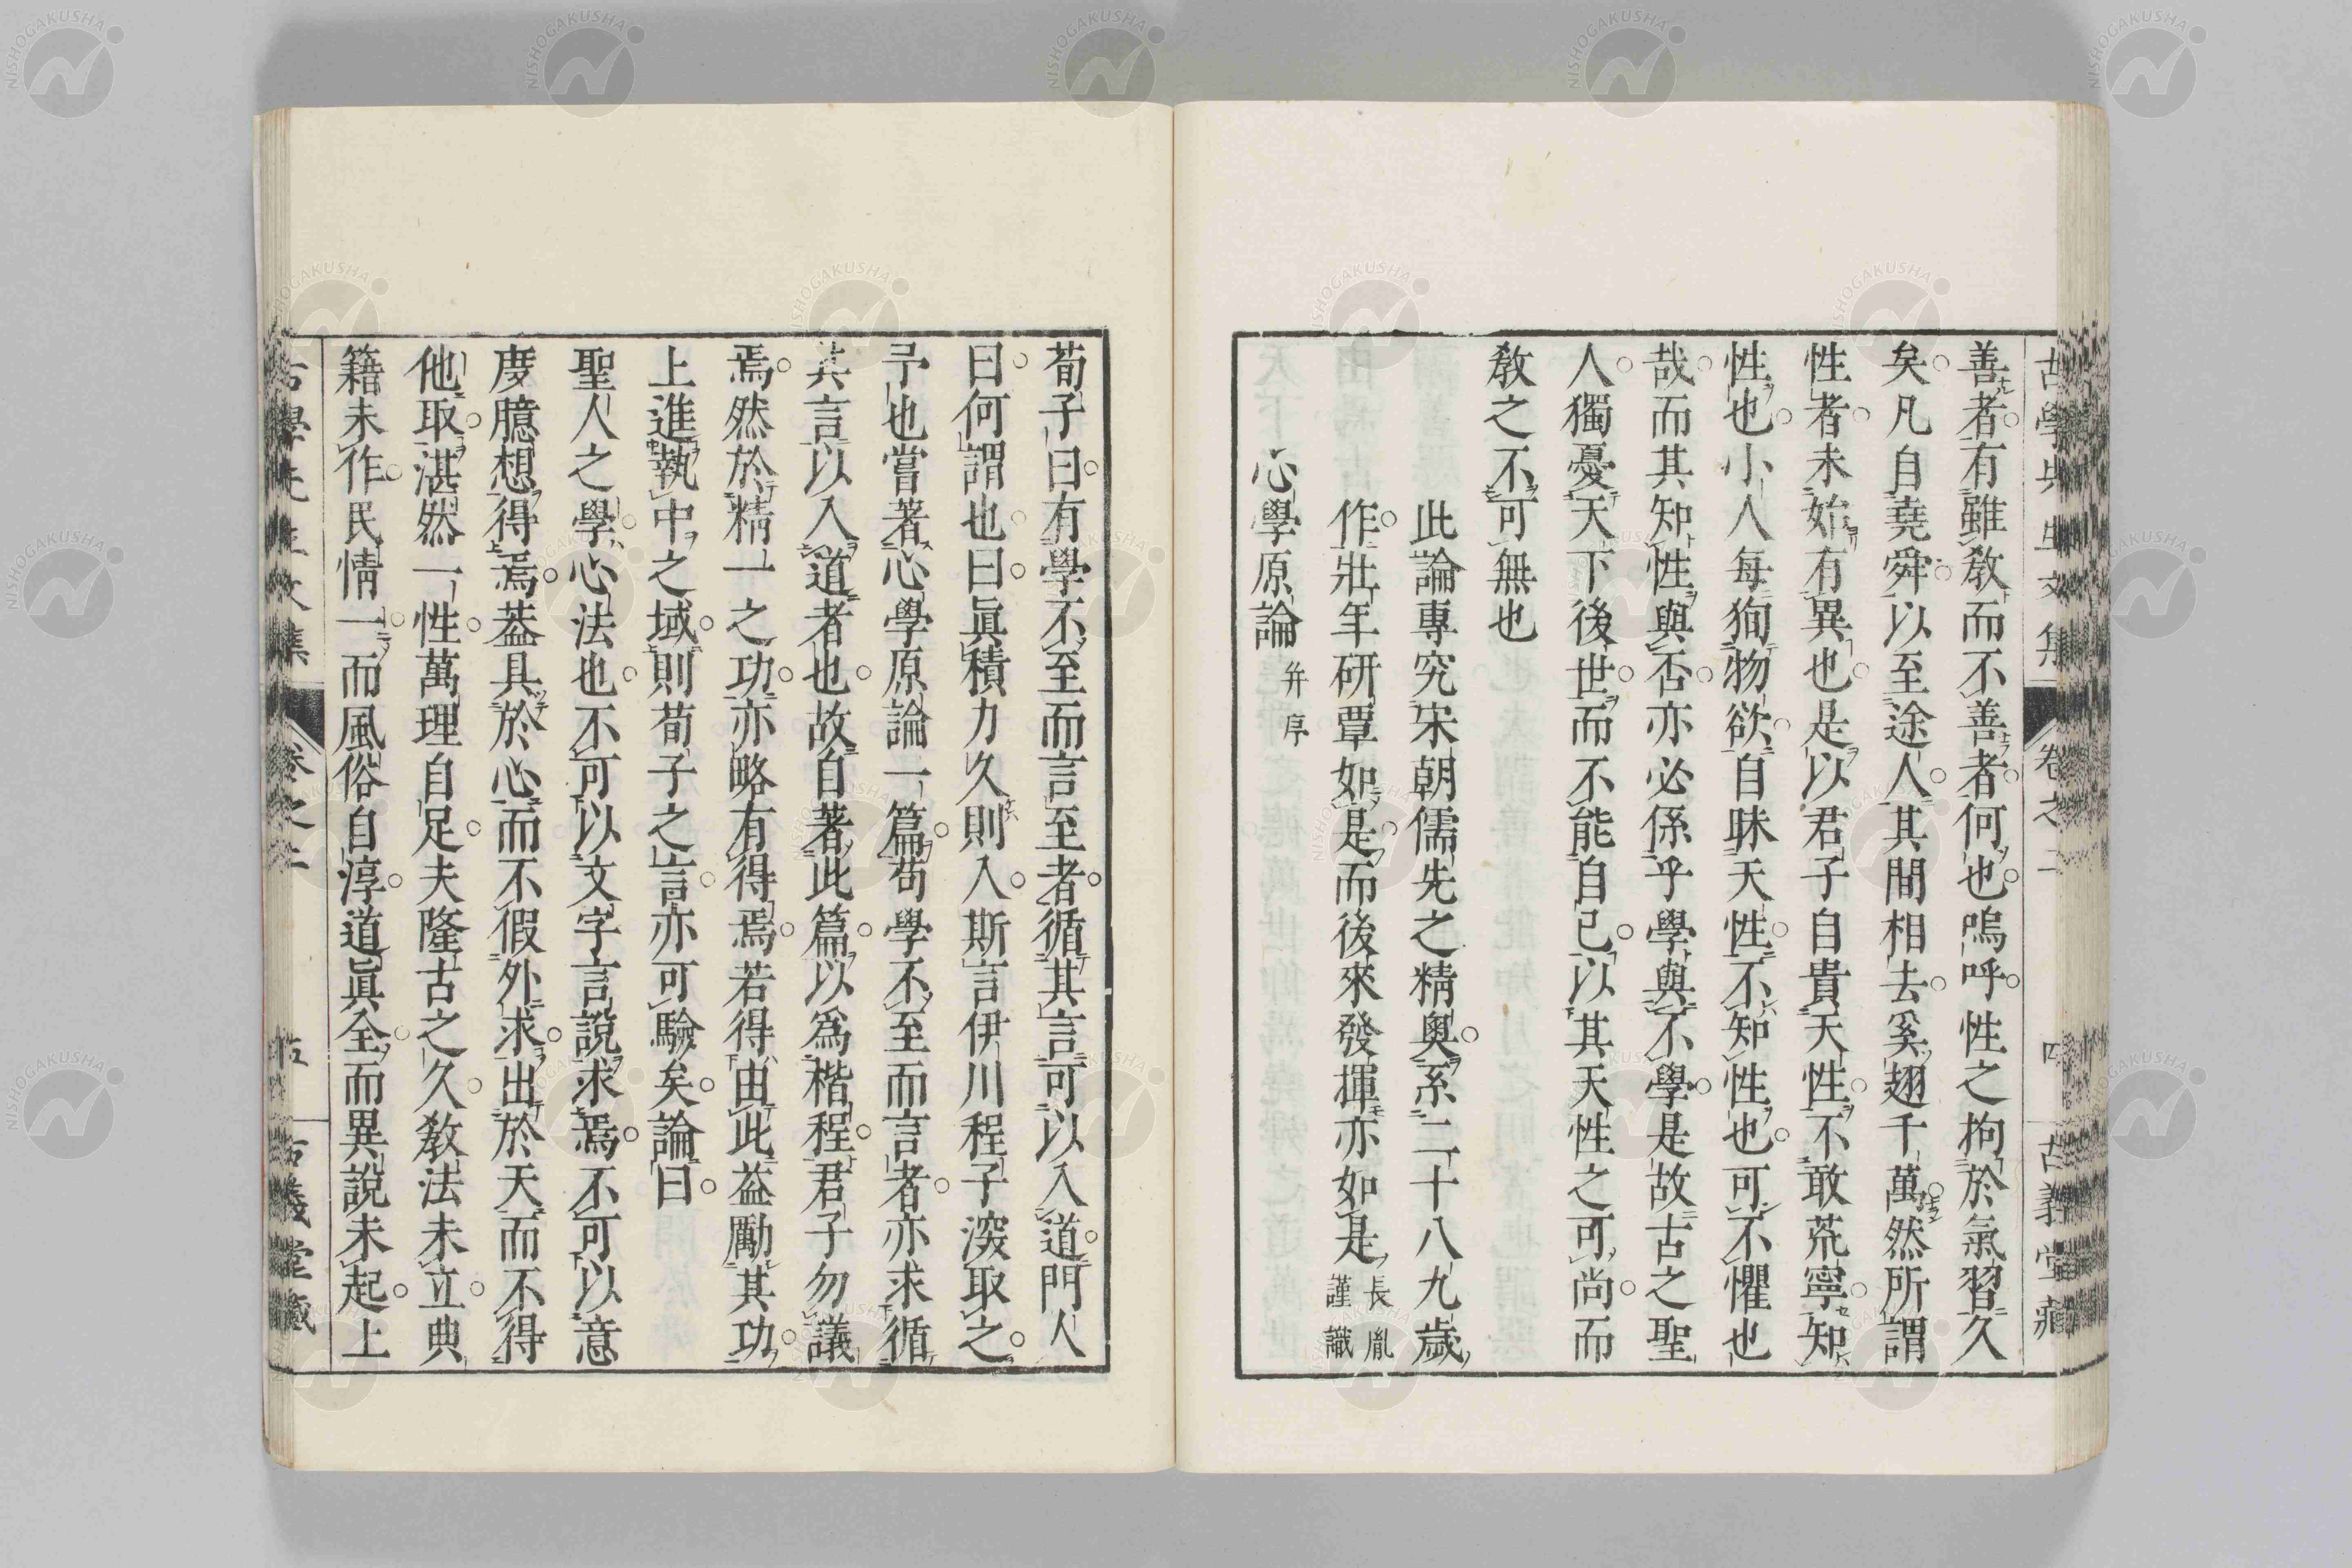 古學先生文集 卷之二 四 古義堂藏
善者有雖敎而不善者何也嗚呼性之拘於氣習久
矣凡自堯舜以至途人其間相去奚翅千萬然所謂
性者未始有異也是以君子自貴天性不敢荒寧知
性也小人每狥物欲自昧天性不知性也可不懼也
哉而其知性與否亦必係乎學與不學是故古之聖
人獨憂天下後世而不能自已以其天性之可尚而
敎之不可無也
此論專究宋朝儒先之精奧系二十八九歲
作壯年研覃如是而後來發揮亦如是 長胤謹識
心學原論 幷序
荀子曰有學不至而言至者循其言可以入道門人
曰何謂也曰眞積力久則入斯言伊川程子深取之
予也嘗著心學原論一篇苟學不至而言者亦求循
其言以入道者也故自著此篇以爲楷程君子勿議
焉然於精一之功亦略有得焉若得由此益勵其功
上進執中之域則荀子之言亦可驗矣論曰
聖人之學心法也不可以文字言說求焉不可以意
度臆想得焉蓋具於心而不假外求出於天而不得
他取湛然一性萬理自足夫隆古之久敎法未立典
籍未作民情一而風俗自淳道眞全而異說未起上
古學先生文集 卷之二 五 古義堂藏
NISHOGAKUSHA